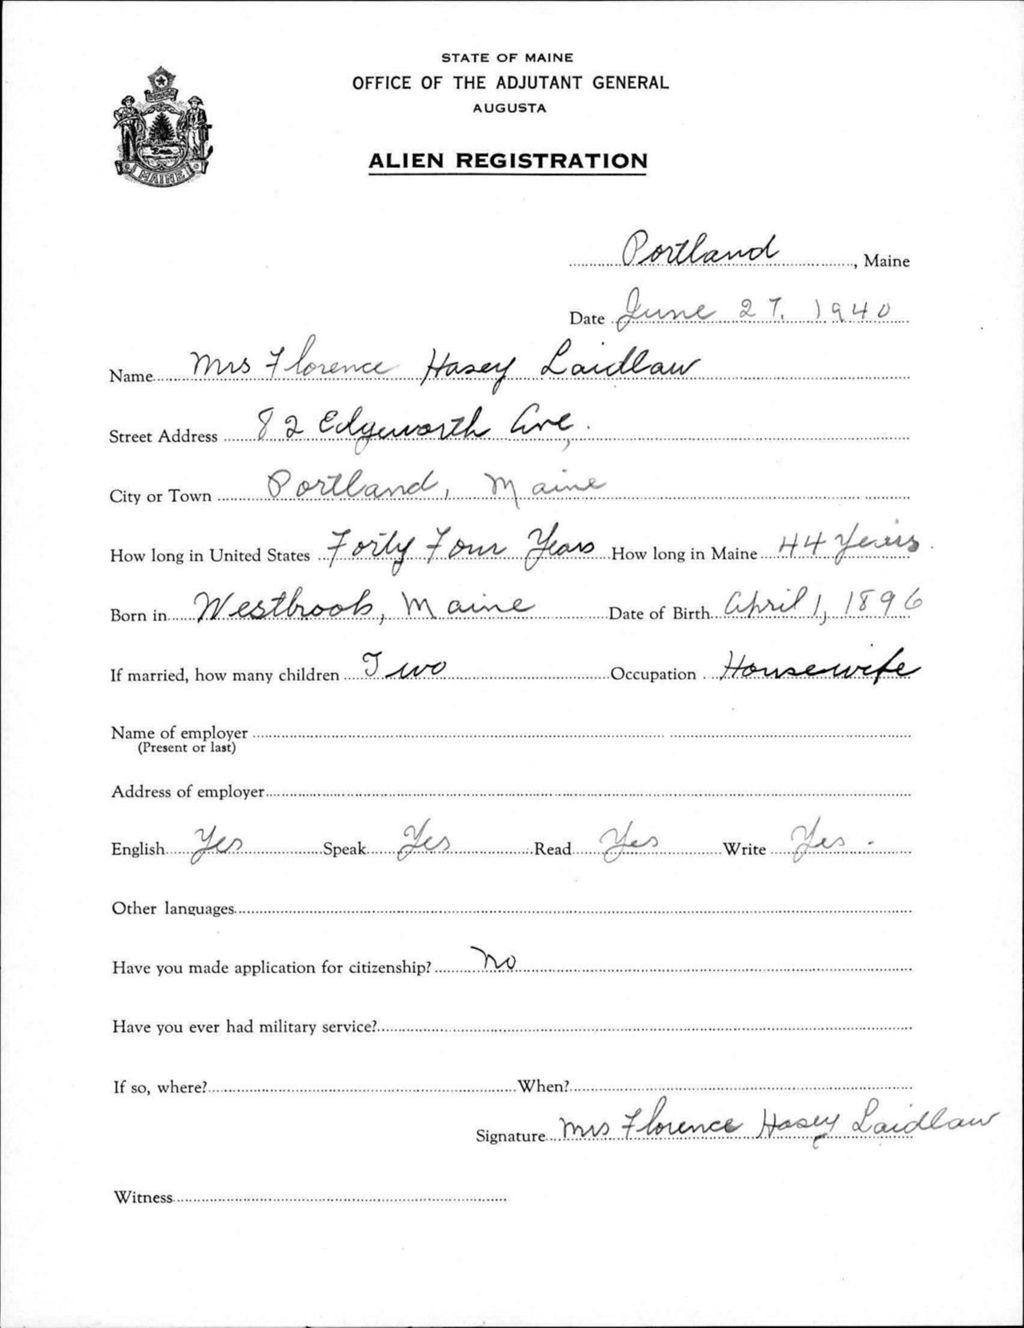 STATE OF MAINE
OFFICE OF THE ADJUTANT GENERAL
AUGUSTA
ALIEN REGISTRATION
MAINE
Portland, Maine
Date June 27, 1940
Name Mrs Florence Hasey Laidlaw
Street Address 82 Edgeworth Ave.
City or Town Portland, Maine
How long in United States Forty Four Years How long in Maine 44 Years.
Born in Westbrook, Maine Date of Birth April 1, 1896
If married, how many children Two Occupation Housewife
Name of employer
(Present or last)
Address of employer
English Yes Speak Yes Read Yes Write Yes -
Other languages
Have you made application for citizenship? No
Have you ever had military service?
If so, where? When?
Signature Mrs Florence Hasey Laidlaw
Witness